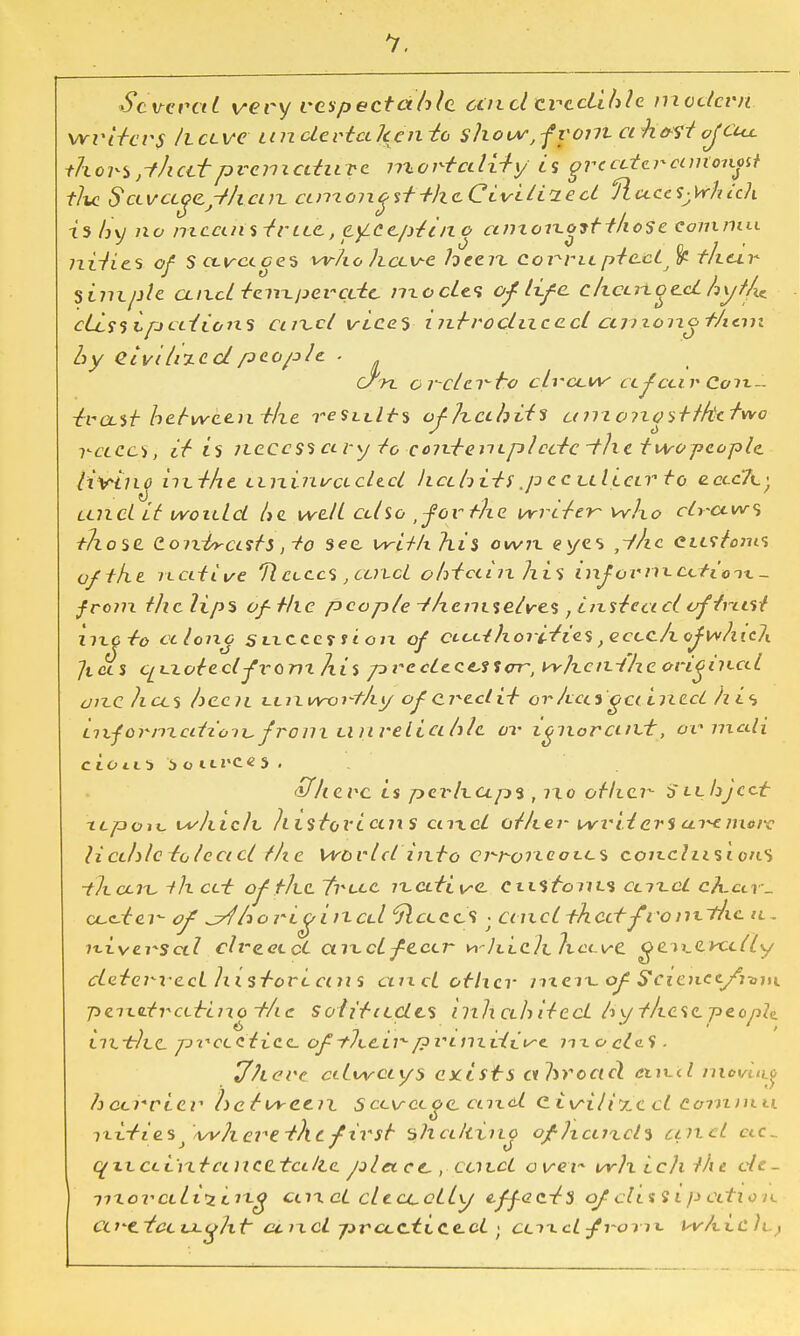 7.
Several very respectable and credible modern
writers have undertaken to show, from a host of Au-
thors, that premature mortality is greater amongst
the Savage, than amongst the Civilized Races; which
is by no means true, excepting amongst those commu
nities of Savages who have been corrupted, & their
simple and temperate modes of life changed by the
dissipations and vices introduced among them
by Civilized people.
In order to draw a fair Con-
trast between the results of habits amongst the two
races, it is necessary to contemplate the two people
living in the uninvaded habits peculiar to each;
and it would be well also, for the writer who draws
those Contrasts, to see with his own eyes, the Customs
of the native Races, and obtain his information
from the lips of the people themselves, instead of trust
ing to a long succession of authorities, each of which
has quoted from his predecessor, when the original
one has been unworthy of credit or has gained his
information from unreliable or ignorant, or mali
cious sources.
There is perhaps, no other Subject
upon which historians and other writers are more
liable to lead the World into erroneous conclusions
than that of the true native Customs and char-
acter of Aboriginal Races; and that from the u-
niversal dread and fear which have generally
deterred historians and other men of Science from
penetrating the solitudes inhabited by these people
in the practice of their primitive modes.
There always exists abroad and moving
barrier between Savage and Civilized commu
nities, where the first shaking of hands and ac-
quaintance take place, and over which the de-
moralizing and deadly effects of dissipation
are taught and practiced; and from which,